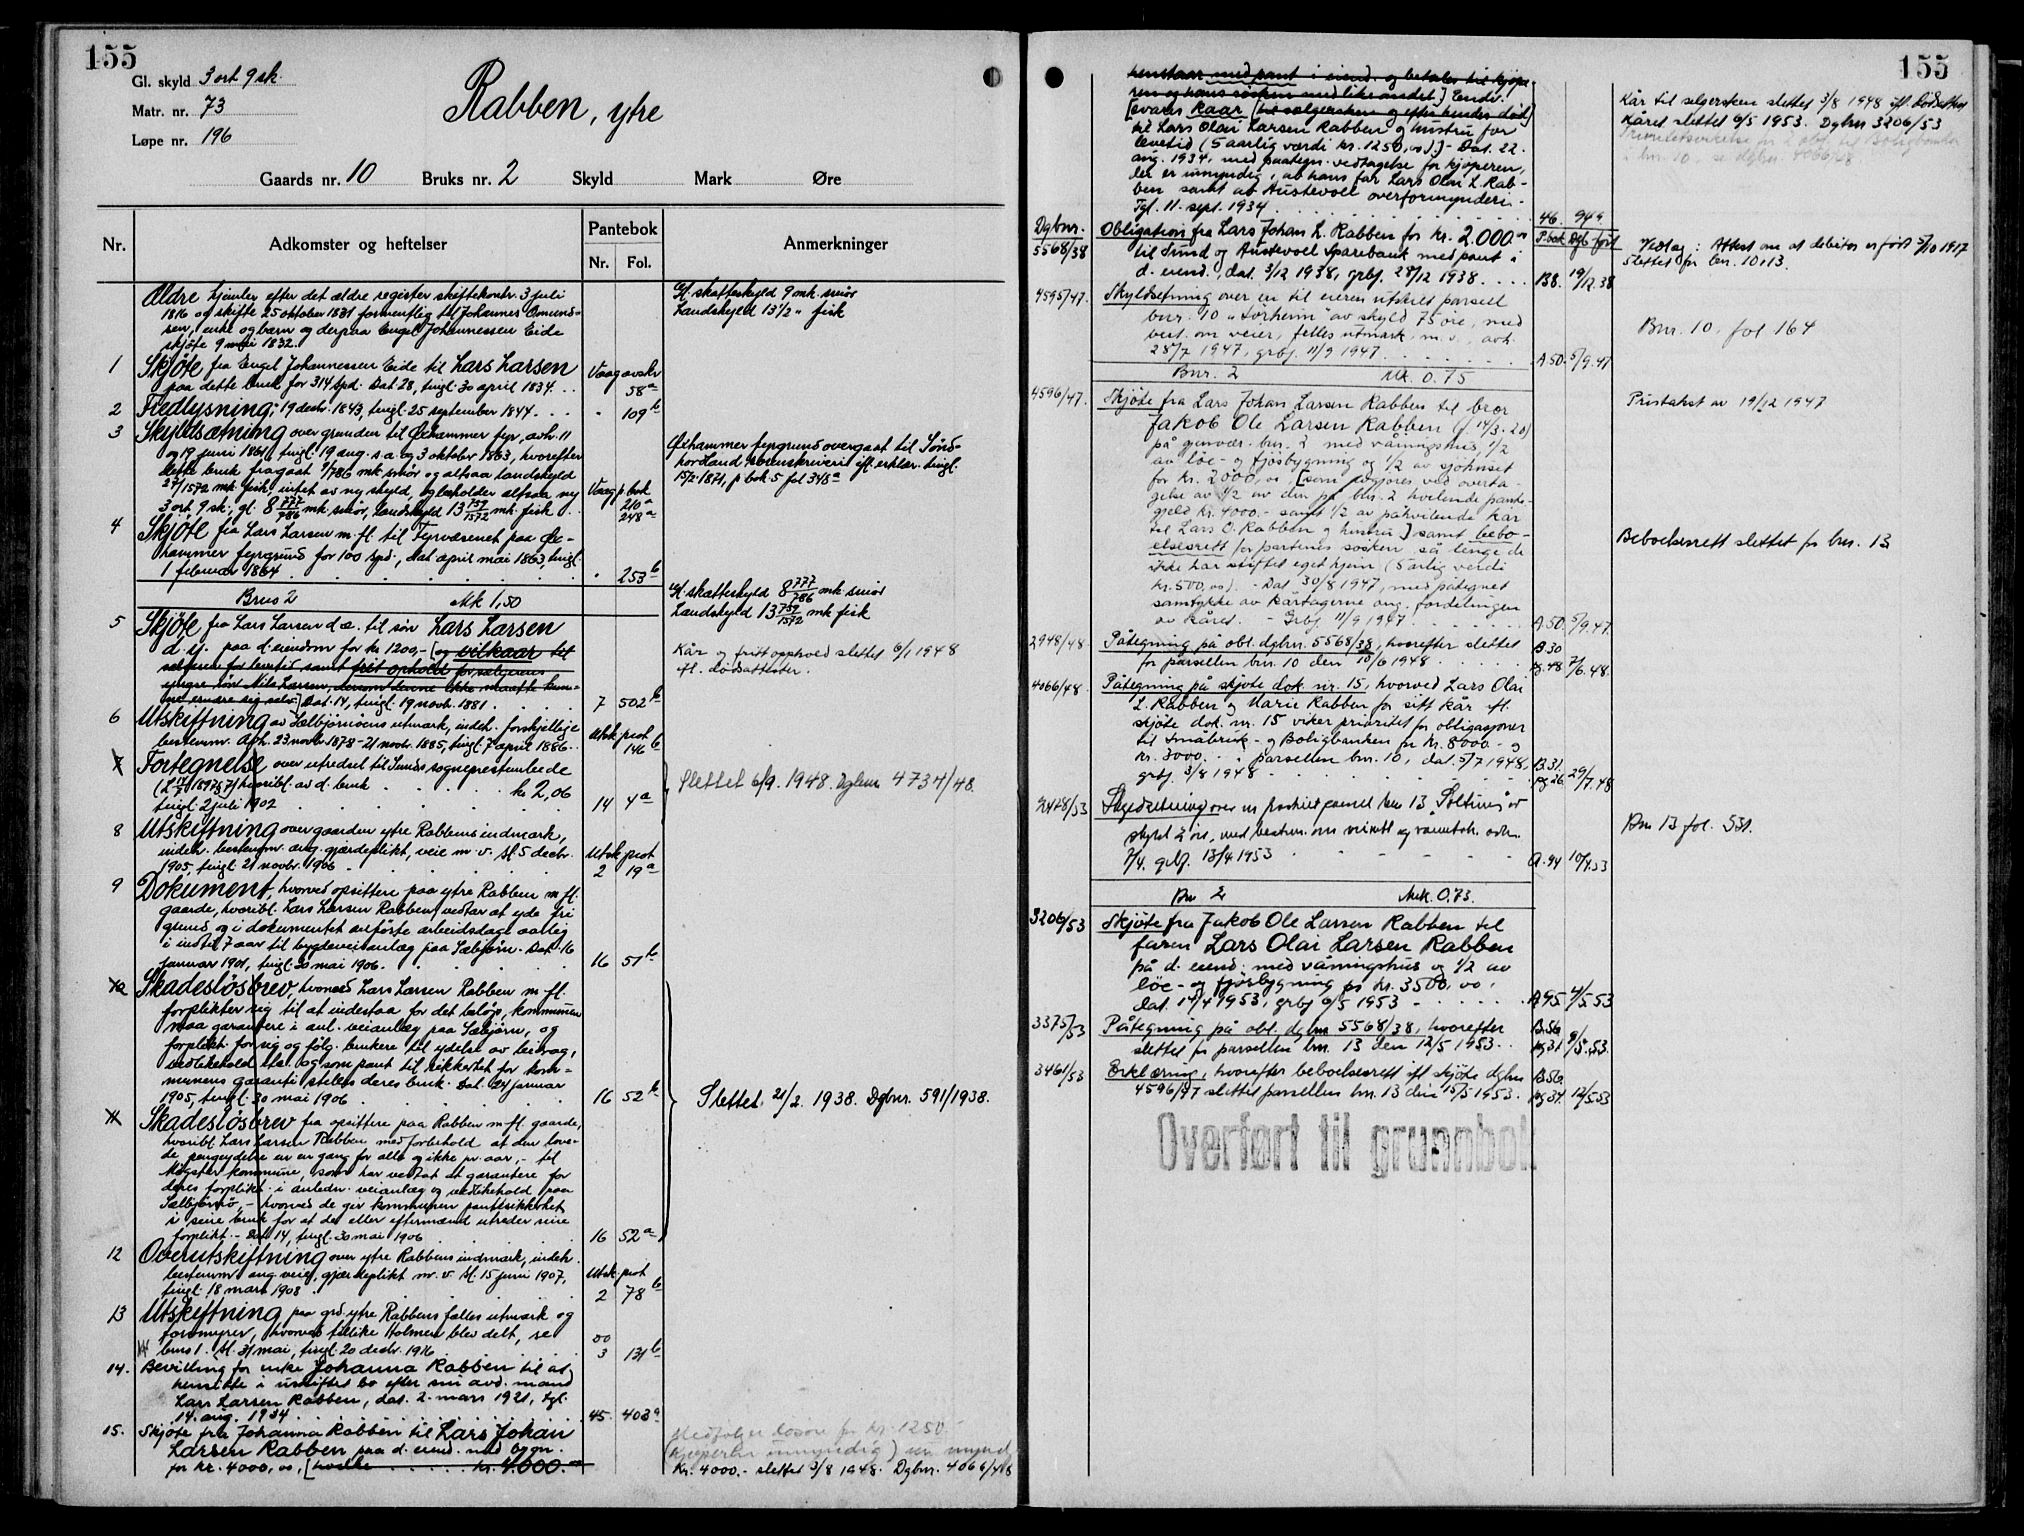 155
Gl. skyld 3 ort 9 sk.
Matr. nr. 73
Løpe nr. 196
Rabben, ytre
Gaards nr. 10 Bruks nr. 2 Skyld Mark Øre
Nr. Adkomster og heftelser Pantebok Anmerkninger
Nr. Fol.
Ældre hjemler efter det ældre register skiftekontr. 3 juli
1816 og skifte 25 oktober 1831 formentlig til Johannes Omunds-
sen, enke og barn og derpaa Engel Johannessen Eide
skjøte 9 mai 1832.
Gl. skatteskyld 9 mk. smør
Landskyld 13 1/2 " fisk
1 Skjøte fra Engel Johannessen Eide til Lars Larsen
paa dette bruk for 314 spd. Dat. 28, tingl. 30 april 1834. Vaag avskr 58a
2 Fredlysning; 19 decbr. 1843, tingl. 25 september 1844. " 109b
3 Skyldsætning over grunden til Øxhammer fyr, avh. 11
og 19 juni 1861, tingl. 19 aug. s.a. og 3 oktober 1863, hvorefter
dette bruk fragaat 9/786 mk smør og altsaa landskyld
27/1572 mk. fisk, intet av ny skyld, og beholder altsaa ny
3 ort 9 sk., gl. 8 777/786 mk. smør, landskyld 13 759/1572 mk. fisk
Vaag p. bok 210a 248a
Øxhammer fyrgrund overgaat til Sønd-
horland sorenskriveri ifl. erklær. tingl.
15/2 1871, p. bok 5 fol 348a
4 Skjøte fra Lars Larsen m. fl. til Fyrvæsenet paa Øx-
hammer fyrgrund for 100 spd., dat april mai 1863, tingl.
1 februar 1864 " 253b
Brus 2 Mk 1,50
Gl. skatteskyld 8 777/786 mk smør
Landskyld 13 759/1572 mk fisk
5 Skjøte fra Lars Larsen d.æ. til søn Lars Larsen
d. y. paa d. eiendom for kr 1200,- [og vilkaar til
sælgerne for levetid samt frit ophold for sælgerens
yngre søn Nils Larsen, dersom denne ikke maatte kun-
ne ernære sig selv.] Dat. 14, tingl. 19 novb. 1881. 7 502b
Kår og fritt opphold slettet 6/1 1948
ifl. dødsattester.
6 Utskiftning av Sælbjørnøens utmark, indeh. forskjellige
bestemm. Avh. 23 novbr. 1878 - 21 novbr. 1885, tingl. 7 april 1886. Utsk. prot 146b
7 Fortegnelse over utredsel til Sunds sogneprestembede
(L. 17/7 1897 § 7) hvoribl. av d. bruk kr 2,06
tingl. 2 juli 1902 14 4a
Slettet 6/9. 1948. Dgbnr 4734/48
8 Utskiftning over gaarden ytre Rabbens indmark,
indeh. bestemm. ang. gjærdeplikt, veie m.v. Sl. 5 decbr.
1905, tingl. 21 novbr. 1906 Utsk prot 2 19a
9 Dokument, hvorved opsittere paa ytre Rabben m. fl.
gaarde, hvoribl. Lars Larsen Rabben, vedtar at yde fri
grund og i dokumentet anførte arbeidsdage aarlig
i indtil 7 aar til bygdeveianlæg paa Sælbjørn. Dat. 16
januar 1901, tingl. 30 mai 1906. 16 51b
10 Skadesløsbrev, hvorved Lars Larsen Rabben m. fl.
forplikter sig til at indestaa for det beløp, kommunen
maa garantere i anl. veianlæg paa Sælbjørn, og
forplikt. for sig og følg. brukere til ydelse av bidrag,
vedlikehold etc. og som pant til sikkerhet for kom-
munens garanti stelles deres bruk. Dat. 24 januar
1905, tingl. 30 mai 1906 16 52b
Slettet 21/2. 1938. Dgbnr. 591/1938.
11 Skadesløsbrev fra opsittere paa Rabben m. fl. gaarde,
hvoribl. Lars Larsen Rabben, med forbehold at den love-
de pengeydelse er en gang for alle og ikke pr. aar, - til
Møgster kommune, som har vedtat at garantere for
deres forplikt. i anledn. veianlæg og vedlikehold paa
Sælbjørnø, - hvorved de gir kommunen pantesikkerhet
i sine bruk for at de eller eftermænd utreder sine
forplikt. - Dat 14, tingl. 30 mai 1906 16 52a
12 Overutskiftning over ytre Rabbens indmark, indeh.
bestemm ang. veie, gjærdeplikt m. v. Sl. 15 juni 1907,
tingl. 18 mars 1908. Utsk. prot 2 78b
13 Utskiftning paa grd. ytre Rabbens fælles utmark og
torvmyrer, hvorved tillike Holmen blev delt, se
brus 1. Sl. 31 mai, tingl. 20 decbr. 1916 3 131b
14. Bevilling for enke Johanna Rabben til at
hensitte i uskiftet bo efter sin avd. mand
Lars Larsen Rabben, dat. 2. mars 1921, tgl.
14. aug. 1934 45. 403a
15. Skjøte fra Johanna Rabben til Lars Johan
Larsen Rabben paa d. eiend. med bygn.
for kr. 4000,00, [hvilke . . . . . kr. 4.000.00
Medfølger løsøre for kr. 1250.-
(Kjøperen umyndig)
Kr. 4000.- slettet 3/8 1948. Dgbnr. 4066/48
155
henstaar med pant i eiend. og betales til kjøpe-
ren og hans søsken med like andel.] Endv.
[svares kaar [til sælgersken og efter hendes død]
til Lars Olai Larsen Rabben og hustru for
levetid (5 aarlig værdi kr. 1250,00).] - Dat. 22.
aug. 1934, med paategn. vedtagelse for kjøperen,
der er umyndig, av hans far Lars Olai L. Rab-
ben samt av Austevoll overformynderi. -
Tgl. 11. sept. 1934 46. 94a
Kår til selgersken slettet 3/8 1948 ifl. dødsattest
Kåret slettet 6/5 1953. Dgbnr 3206/53
Prioritetsvikelse for 2 obl. til Boligbanken
i bnr. 10, se dgbnr. 4066/48
Dgbnr. P.bok Dgb. ført
5568/38 Obligation fra Lars Johan L. Rabben for kr. 2.000.00
til Sund og Austevoll Sparebank med pant i
d. eiend., dat. 3/12 1938, grbf. 28/12 1938. B8. 19/12.38
Vedlag: Attest om at debitor er født 5/10 1917
Slettet for bnr. 10 & 13.
4595/47. Skyldsetning over en til eieren utskilt parsell
bnr. 10 "Sørheim" av skyld 75 øre, med
best. om veier, felles utmark m. v., avh.
28/7 1947, grbf. 11/9 1947. A50. 5/9.47
Bnr. 10, fol 164
Bnr. 2 Mk. 0.75
4596/47. Skjøte fra Lars Johan Larsen Rabben til bror
Jakob Ole Larsen Rabben (f. 14/3-20)
på gjenvær. bnr. 2 med våningshus, 1/2
av løe- og fjøsbygning og 1/2 av sjøhuset
for kr. 2000,00, [som avgjøres ved overta-
gelse av 1/2 av den på bnr. 2 hvilende pante-
gjeld kr. 4000.- samt 1/2 av påhvilende kår
til Lars O. Rabben og hustru] samt bebo-
elsesrett for partenes søsken så lenge de
ikke har skiftet eget hjem (5 årlig verdi
kr. 500,00). - Dat. 30/8 1947, med påtegnet
samtykke av kårtagerne ang. fordelingen
av kåret. - Grbf. 11/9 1947. A.50. 5/9.47.
Pristakst av 19/12 1947
Beboelsesrett slettet for bnr. 13
2948/48. Påtegning på obl. dgbnr. 5568/38, hvorefter slettet
for parsellen bnr. 10 den 10/6 1948 B30 pg. 48. 7/6.48.
4066/48. Påtegning på skjøte dok. nr. 15, hvorved Lars Olai
L. Rabben og Marie Rabben for sitt kår ifl.
skjøte dok. nr. 15 viker prioritet for obligasjoner
til Småbruk- og Boligbanken for kr. 8000.- og
kr. 3000.- i parsellen bnr. 10, dat. 5/7 1948,
grbf. 3/8 1948 B.31. pg. 26. 29/7.48
2428/53 Skyldsetning over en fraskilt parsell bnr 13 "Soltun" av
skyld 2 øre, med bestem. om veirett og vannrett. avh.
7/4. grbf. 13/4 1953 A.94 10/4.53
Bnr 13 fol. 531.
Bnr 2 Mrk. 0.73.
3206/53 Skjøte fra Jakob Ole Larsen Rabben til
faren Lars Olai Larsen Rabben
på d. eiend. med våningshus og 1/2 av
løe- og fjøsbygning for kr. 3500,00.
Dat. 14/4 1953, grbf. 6/5 1953 A95 4/5.53
3375/53 Påtegning på obl. dgbnr 5568/38, hvorefter
slettet for parsellen bnr. 13 den 12/5 1953. B56. pg31. 9/5.53.
3461/53 Erklæring, hvorefter beboelsesrett ifl skjøte dgbnr
4596/47 slettet parsellen bnr. 13 den 15/5 1953. B56. pg34. 12/5.53
Overført til grunnbok